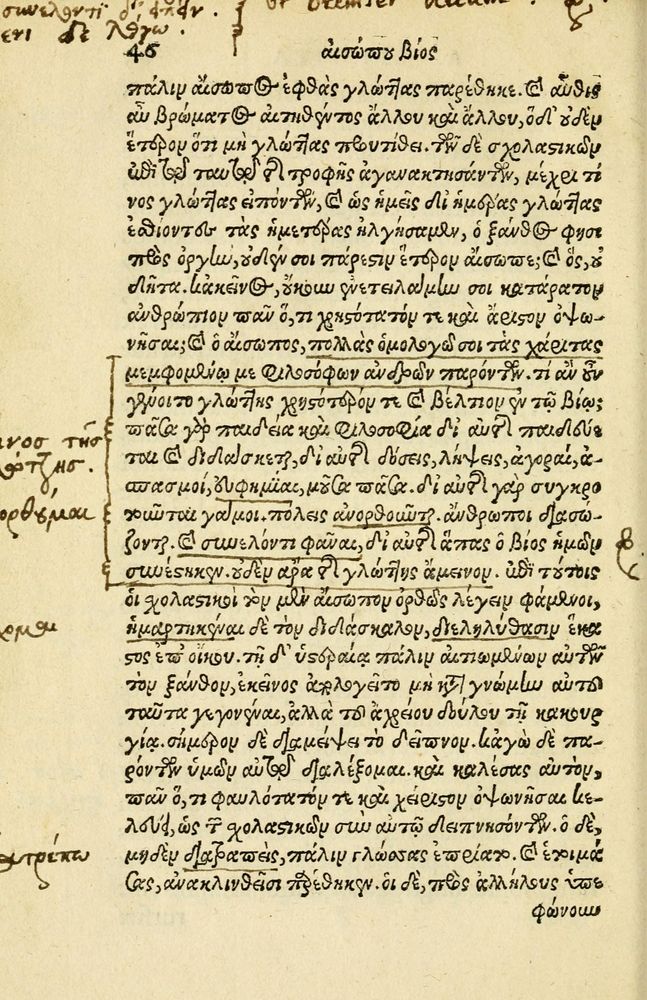 συνελόντι δὲ φάναι.
ενι δὲ λόγω.
46 ΑΙΣΩΠΟΥ ΒΙΟΣ
πάλιν αἴσωπος ἑφθὰς γλώττας παρέθηκε. καὶ αὖθις
αὖ βρώματος αἰτηθέντος ἄλλου καὶ ἄλλου, ὅδ' οὐδὲν
ἕτερον ὅτι μὴ γλώττας προυτίθει. τῶν δὲ σχολαστικῶν
ἐπὶ τῷ ταυτῷ τῆς τροφῆς ἀγανακτησάντων, μέχρι τί
νος γλώττας εἰπόντων, καὶ ὡς ἡμεῖς δι' ἡμέρας γλώττας
ἐσθίοντες τὰς ἡμετέρας ἠλγήσαμεν, ὁ ξάνθος φησι
πρὸς ὀργὴν, οὐδέν σοι πάρεστιν ἕτερον αἴσωπε; καὶ ὃς, οὐ
δῆτα. κἀκεῖνος, οὔκουν ἐνετειλάμην σοι κατάρατον
ἀνθρώπιον πᾶν ὅ, τι χρηστότατόν τε καὶ ἄριστον ὀψω-
νῆσαι; καὶ ὁ αἴσωπος, πολλὰς ὁμολογῶ σοι τὰς χάριτας
μεμφομένῳ με φιλοσόφων ἀνδρῶν παρόντων. τί ἂν οὖν
γένοιτο γλώττης χρηστότερόν τε καὶ βέλτιον ἐν τῷ βίῳ;
πᾶσα γὰρ παιδεία καὶ φιλοσοφία δι' αὐτῆς παιδεύε
ται καὶ διδάσκεται, δι' αὐτῆς δόσεις, λήψεις, ἀγοραί, ἀ-
σπασμοί, εὐφημίαι, μοῦσα πᾶσα. δι' αὐτῆς γὰρ συγκρο
τοῦνται γάμοι. πόλεις ἀνορθοῦνται. ἄνθρωποι διασώ-
ζονται. καὶ συνελόντι φᾶναι, δι' αὐτῆς ἅπας ὁ βίος ἡμῶν
συνέστηκεν. οὐδὲν ἄρα τῆς γλώττης ἄμεινον. ἐπὶ τούτοις
οἱ σχολαστικοὶ τὸν μὲν αἴσωπον ὀρθῶς λέγειν φάμενοι,
ἡμαρτηκέναι δὲ τὸν διδάσκαλον, διεληλύθασιν ἕκα
στος ἐπ' οἴκου. τῇ δ' ὑστεραίᾳ πάλιν αἰτιωμένων αὐτῶν
τὸν ξάνθον, ἐκεῖνος ἀπελογεῖτο μὴ κατὰ γνώμην αὐτοῦ
ταῦτα γεγονέναι, ἀλλὰ τοῦ ἀχρείου δούλου τῇ κακουρ
γίᾳ. σήμερον δὲ διαμείψει τὸ δεῖπνον. κἀγὼ δὲ πα-
ρόντων ὑμῶν αὐτῷ διαλέξομαι. καὶ καλέσας αὐτὸν,
πᾶν ὅ, τι φαυλότατόν τε καὶ χεῖριστον ὀψωνῆσαι κε-
λεύει, ὡς τῶν σχολαστικῶν σὺν αὐτῷ δειπνησόντων. ὁ δὲ,
μηδὲν διατραπεὶς, πάλιν γλώσσας ἐπρίατο. καὶ ἑτοιμά
σας, ἀνακλινθεῖσι παρέθηκεν. οἱ δὲ, πρὸς ἀλλήλους ὑπε
φώνουν